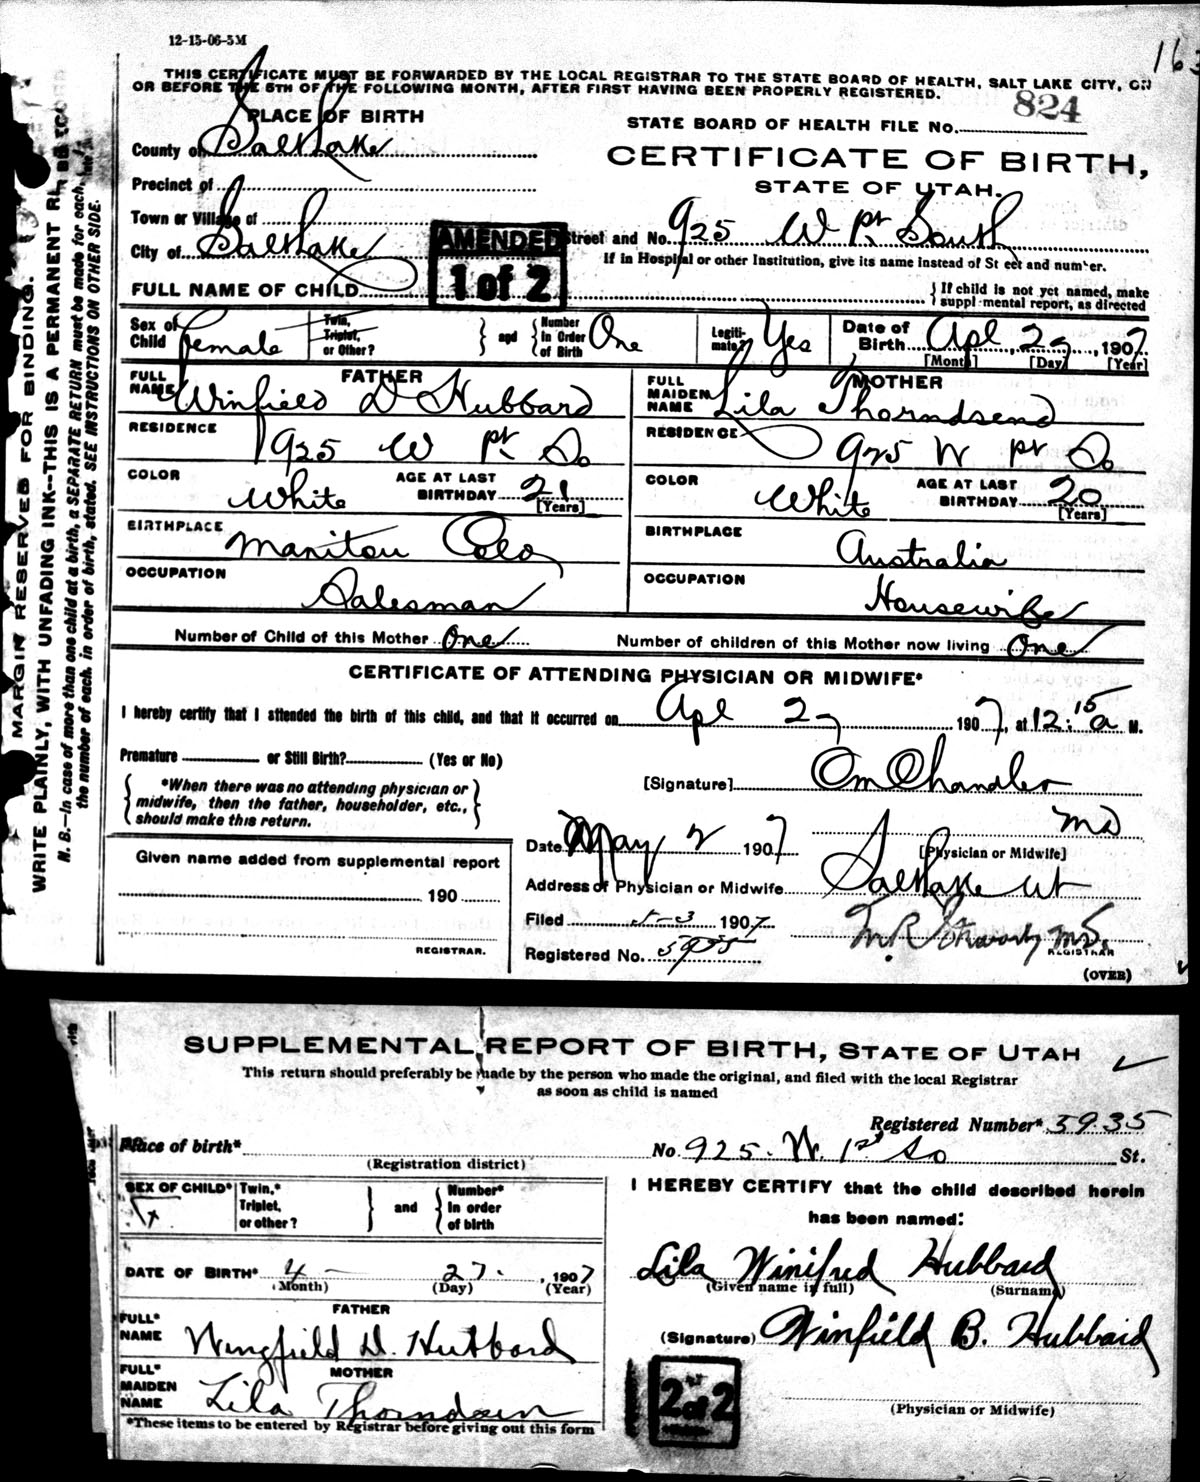 12-15-06-5M
163
THIS CERTIFICATE MUST BE FORWARDED BY THE LOCAL REGISTRAR TO THE STATE BOARD OF HEALTH, SALT LAKE CITY, ON
OR BEFORE THE 5TH OF THE FOLLOWING MONTH, AFTER FIRST HAVING BEEN PROPERLY REGISTERED.
824
PLACE OF BIRTH
STATE BOARD OF HEALTH FILE No.
County of Salt Lake
CERTIFICATE OF BIRTH,
Precinct of
STATE OF UTAH.
Town or Village of
City of Salt Lake
AMENDED
1 of 2
Street and No. 925 W 1st South
If in Hospital or other Institution, give its name instead of Street and number.
FULL NAME OF CHILD
If child is not yet named, make supplemental report, as directed
Sex of Child Female
Twin, Triplet, or Other?
and
Number in Order of Birth One
Legitimate? Yes
Date of Birth Apl 27, 1907
[Month] [Day] [Year]
FATHER
FULL NAME Winfield D Hubbard
MOTHER
FULL MAIDEN NAME Lila Thorndsend
RESIDENCE 925 W 1st So
RESIDENCE 925 W 1st So
COLOR White
AGE AT LAST BIRTHDAY 21 [Years]
COLOR White
AGE AT LAST BIRTHDAY 20 [Years]
BIRTHPLACE Manitou Colo
BIRTHPLACE Australia
OCCUPATION Salesman
OCCUPATION Housewife
Number of Child of this Mother One
Number of children of this Mother now living One
CERTIFICATE OF ATTENDING PHYSICIAN OR MIDWIFE*
I hereby certify that I attended the birth of this child, and that it occurred on Apl 27 1907, at 12:15 a M.
Premature or Still Birth? (Yes or No)
*When there was no attending physician or
midwife, then the father, householder, etc.,
should make this return.
[Signature] O M Chandler
MD
[Physician or Midwife]
Date May 2 1907
Address of Physician or Midwife Salt Lake Ut
Given name added from supplemental report
190
REGISTRAR.
Filed 5-3 1907
M. R. Stewart M.D.
REGISTRAR
Registered No.
(OVER)
MARGIN RESERVED FOR BINDING.
WRITE PLAINLY, WITH UNFADING INK--THIS IS A PERMANENT
N. B.—In case of more than one child at a birth, a SEPARATE RETURN must be made for each,
the number of each, in order of birth, stated. SEE INSTRUCTIONS ON OTHER SIDE.
SUPPLEMENTAL REPORT OF BIRTH, STATE OF UTAH
This return should preferably be made by the person who made the original, and filed with the local Registrar
as soon as child is named
Registered Number* 5935
Place of birth*
(Registration district)
No. 925. W. 1st So St.
SEX OF CHILD* F
Twin,* Triplet, or other?
and
Number* in order of birth
I HEREBY CERTIFY that the child described herein
has been named:
DATE OF BIRTH* 4 - 27. , 1907
(Month) (Day) (Year)
Lila Winifred Hubbard
(Given name in full) (Surname)
FATHER
FULL* NAME Wingfield D. Hubbard
(Signature) Winfield B. Hubbard
MOTHER
FULL* MAIDEN NAME Lila Thorndsen
2 of 2
(Physician or Midwife)
*These items to be entered by Registrar before giving out this form